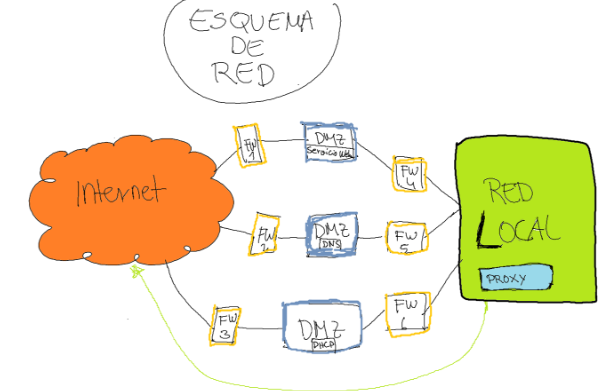 ESQUEMA
DE
RED
Internet
FW
1
DMZ
Servicio Web
FW
4
FW
2
DMZ
DNS
FW
5
FW
3
DMZ
DHCP
FW
6
RED
LOCAL
PROXY